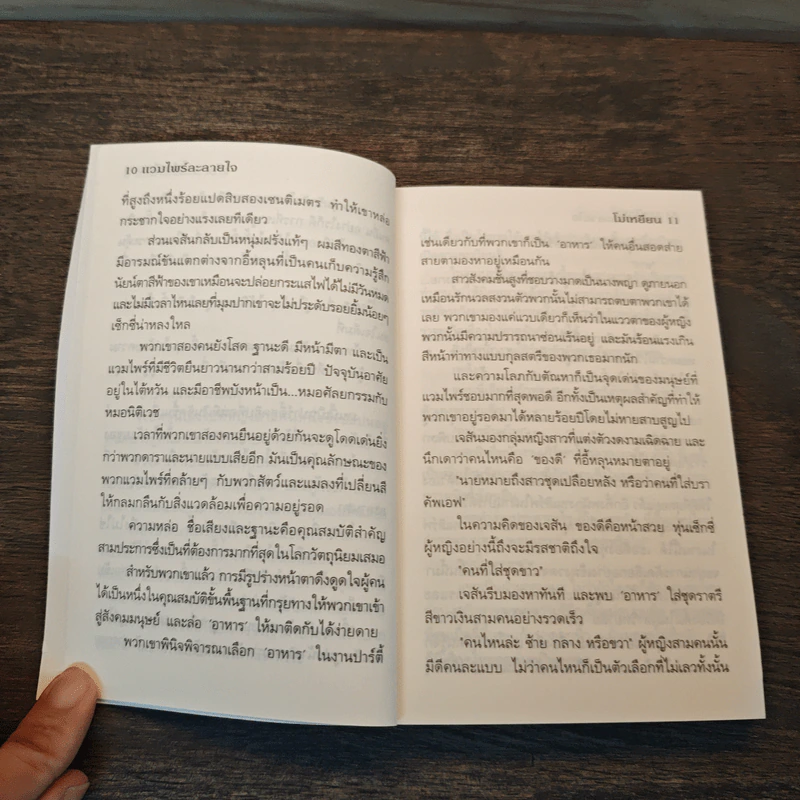 10 แวมไพร์ละลายใจ
ที่สูงถึงหนึ่งร้อยแปดสิบสองเซนติเมตร ทำให้เขาหล่อ
กระชากใจอย่างแรงเลยทีเดียว
ส่วนเจสันกลับเป็นหนุ่มฝรั่งแท้ๆ ผมสีทองตาสีฟ้า
มีอารมณ์ขันแตกต่างจากอี้หลุนที่เป็นคนเก็บความรู้สึก
นัยน์ตาสีฟ้าของเขาเหมือนจะปล่อยกระแสไฟได้ไม่มีวันหมด
และไม่มีเวลาไหนเลยที่มุมปากเขาจะไม่ประดับรอยยิ้มน้อยๆ
เซ็กซี่น่าหลงใหล
พวกเขาสองคนยังโสด ฐานะดี มีหน้ามีตา และเป็น
แวมไพร์ที่มีชีวิตยืนยาวนานกว่าสามร้อยปี ปัจจุบันอาศัย
อยู่ในไต้หวัน และมีอาชีพบังหน้าเป็น...หมอศัลยกรรมกับ
หมอนิติเวช
เวลาที่พวกเขาสองคนยืนอยู่ด้วยกันจะดูโดดเด่นยิ่ง
กว่าพวกดาราและนายแบบเสียอีก มันเป็นคุณลักษณะของ
พวกแวมไพร์ที่คล้ายๆ กับพวกสัตว์และแมลงที่เปลี่ยนสี
ให้กลมกลืนกับสิ่งแวดล้อมเพื่อความอยู่รอด
ความหล่อ ชื่อเสียงและฐานะคือคุณสมบัติสำคัญ
สามประการซึ่งเป็นที่ต้องการมากที่สุดในโลกวัตถุนิยมเสมอ
สำหรับพวกเขาแล้ว การมีรูปร่างหน้าตาดึงดูดใจผู้คน
ได้เป็นหนึ่งในคุณสมบัติขั้นพื้นฐานที่กรุยทางให้พวกเขาเข้า
สู่สังคมมนุษย์ และล่อ 'อาหาร' ให้มาติดกับได้ง่ายดาย
พวกเขาพินิจพิจารณาเลือก 'อาหาร' ในงานปาร์ตี้
โม่เหยียน 11
เช่นเดียวกับที่พวกเขาก็เป็น 'อาหาร' ให้คนอื่นสอดส่าย
สายตามองหาอยู่เหมือนกัน
สาวสังคมชั้นสูงที่ชอบวางมาดเป็นนางพญา ดูภายนอก
เหมือนรักนวลสงวนตัวพวกนั้นไม่สามารถตบตาพวกเขาได้
เลย พวกเขามองแค่แวบเดียวก็เห็นว่าในแววตาของผู้หญิง
พวกนั้นมีความปรารถนาซ่อนเร้นอยู่ และมันร้อนแรงเกิน
สีหน้าท่าทางแบบกุลสตรีของพวกเธอมากนัก
และความโลภกับตัณหาก็เป็นจุดเด่นของมนุษย์ที่
แวมไพร์ชอบมากที่สุดพอดี อีกทั้งเป็นเหตุผลสำคัญที่ทำให้
พวกเขาอยู่รอดมาได้หลายร้อยปีโดยไม่หายสาบสูญไป
เจสันมองกลุ่มหญิงสาวที่แต่งตัวงดงามเฉิดฉาย และ
นึกเดาว่าคนไหนคือ 'ของดี' ที่อี้หลุนหมายตาอยู่
"นายหมายถึงสาวชุดเปลือยหลัง หรือว่าคนที่ใส่บรา
คัพเอฟ"
ในความคิดของเจสัน ของดีคือหน้าสวย หุ่นเซ็กซี่
ผู้หญิงอย่างนี้ถึงจะมีรสชาติถึงใจ
"คนที่ใส่ชุดขาว"
เจสันรีบมองหาทันที และพบ 'อาหาร' ใส่ชุดราตรี
สีขาวเงินสามคนอย่างรวดเร็ว
"คนไหนล่ะ ซ้าย กลาง หรือขวา" ผู้หญิงสามคนนั้น
มีดีคนละแบบ ไม่ว่าคนไหนก็เป็นตัวเลือกที่ไม่เลวทั้งนั้น